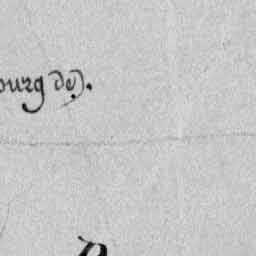 ourg de).